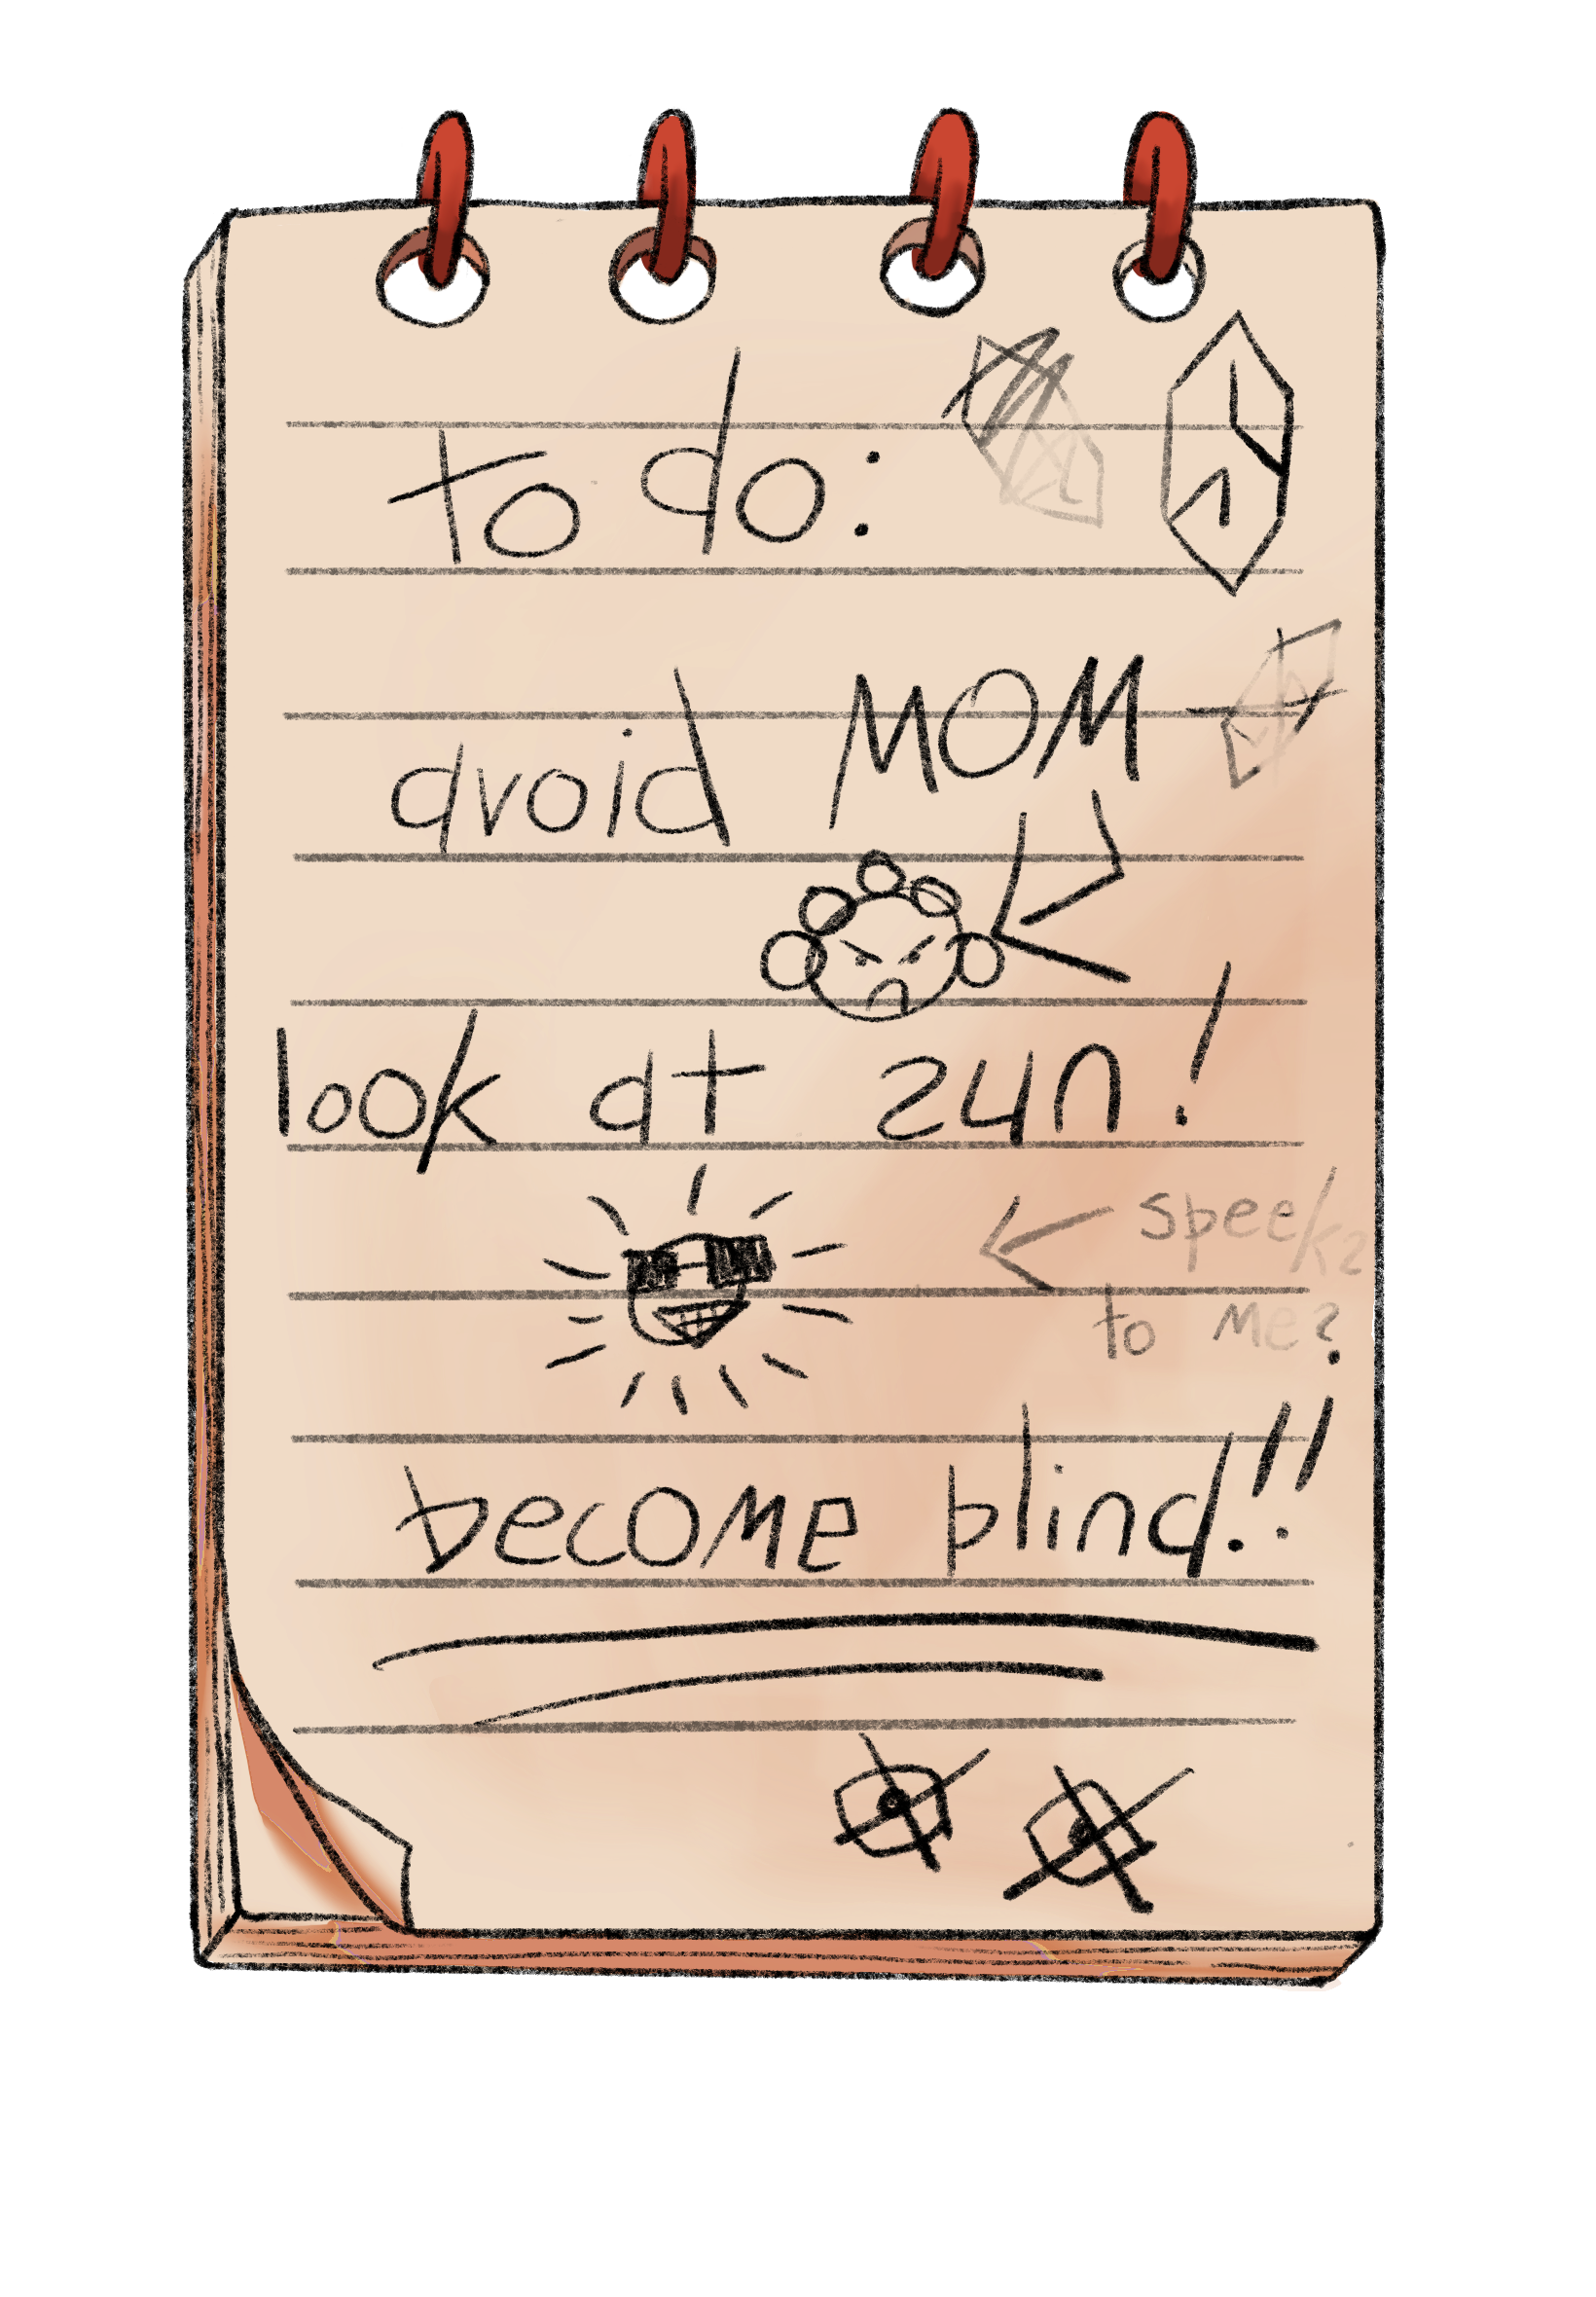 to do:
avoid MOM
look at zun!
speekz
to me?
become blind!!